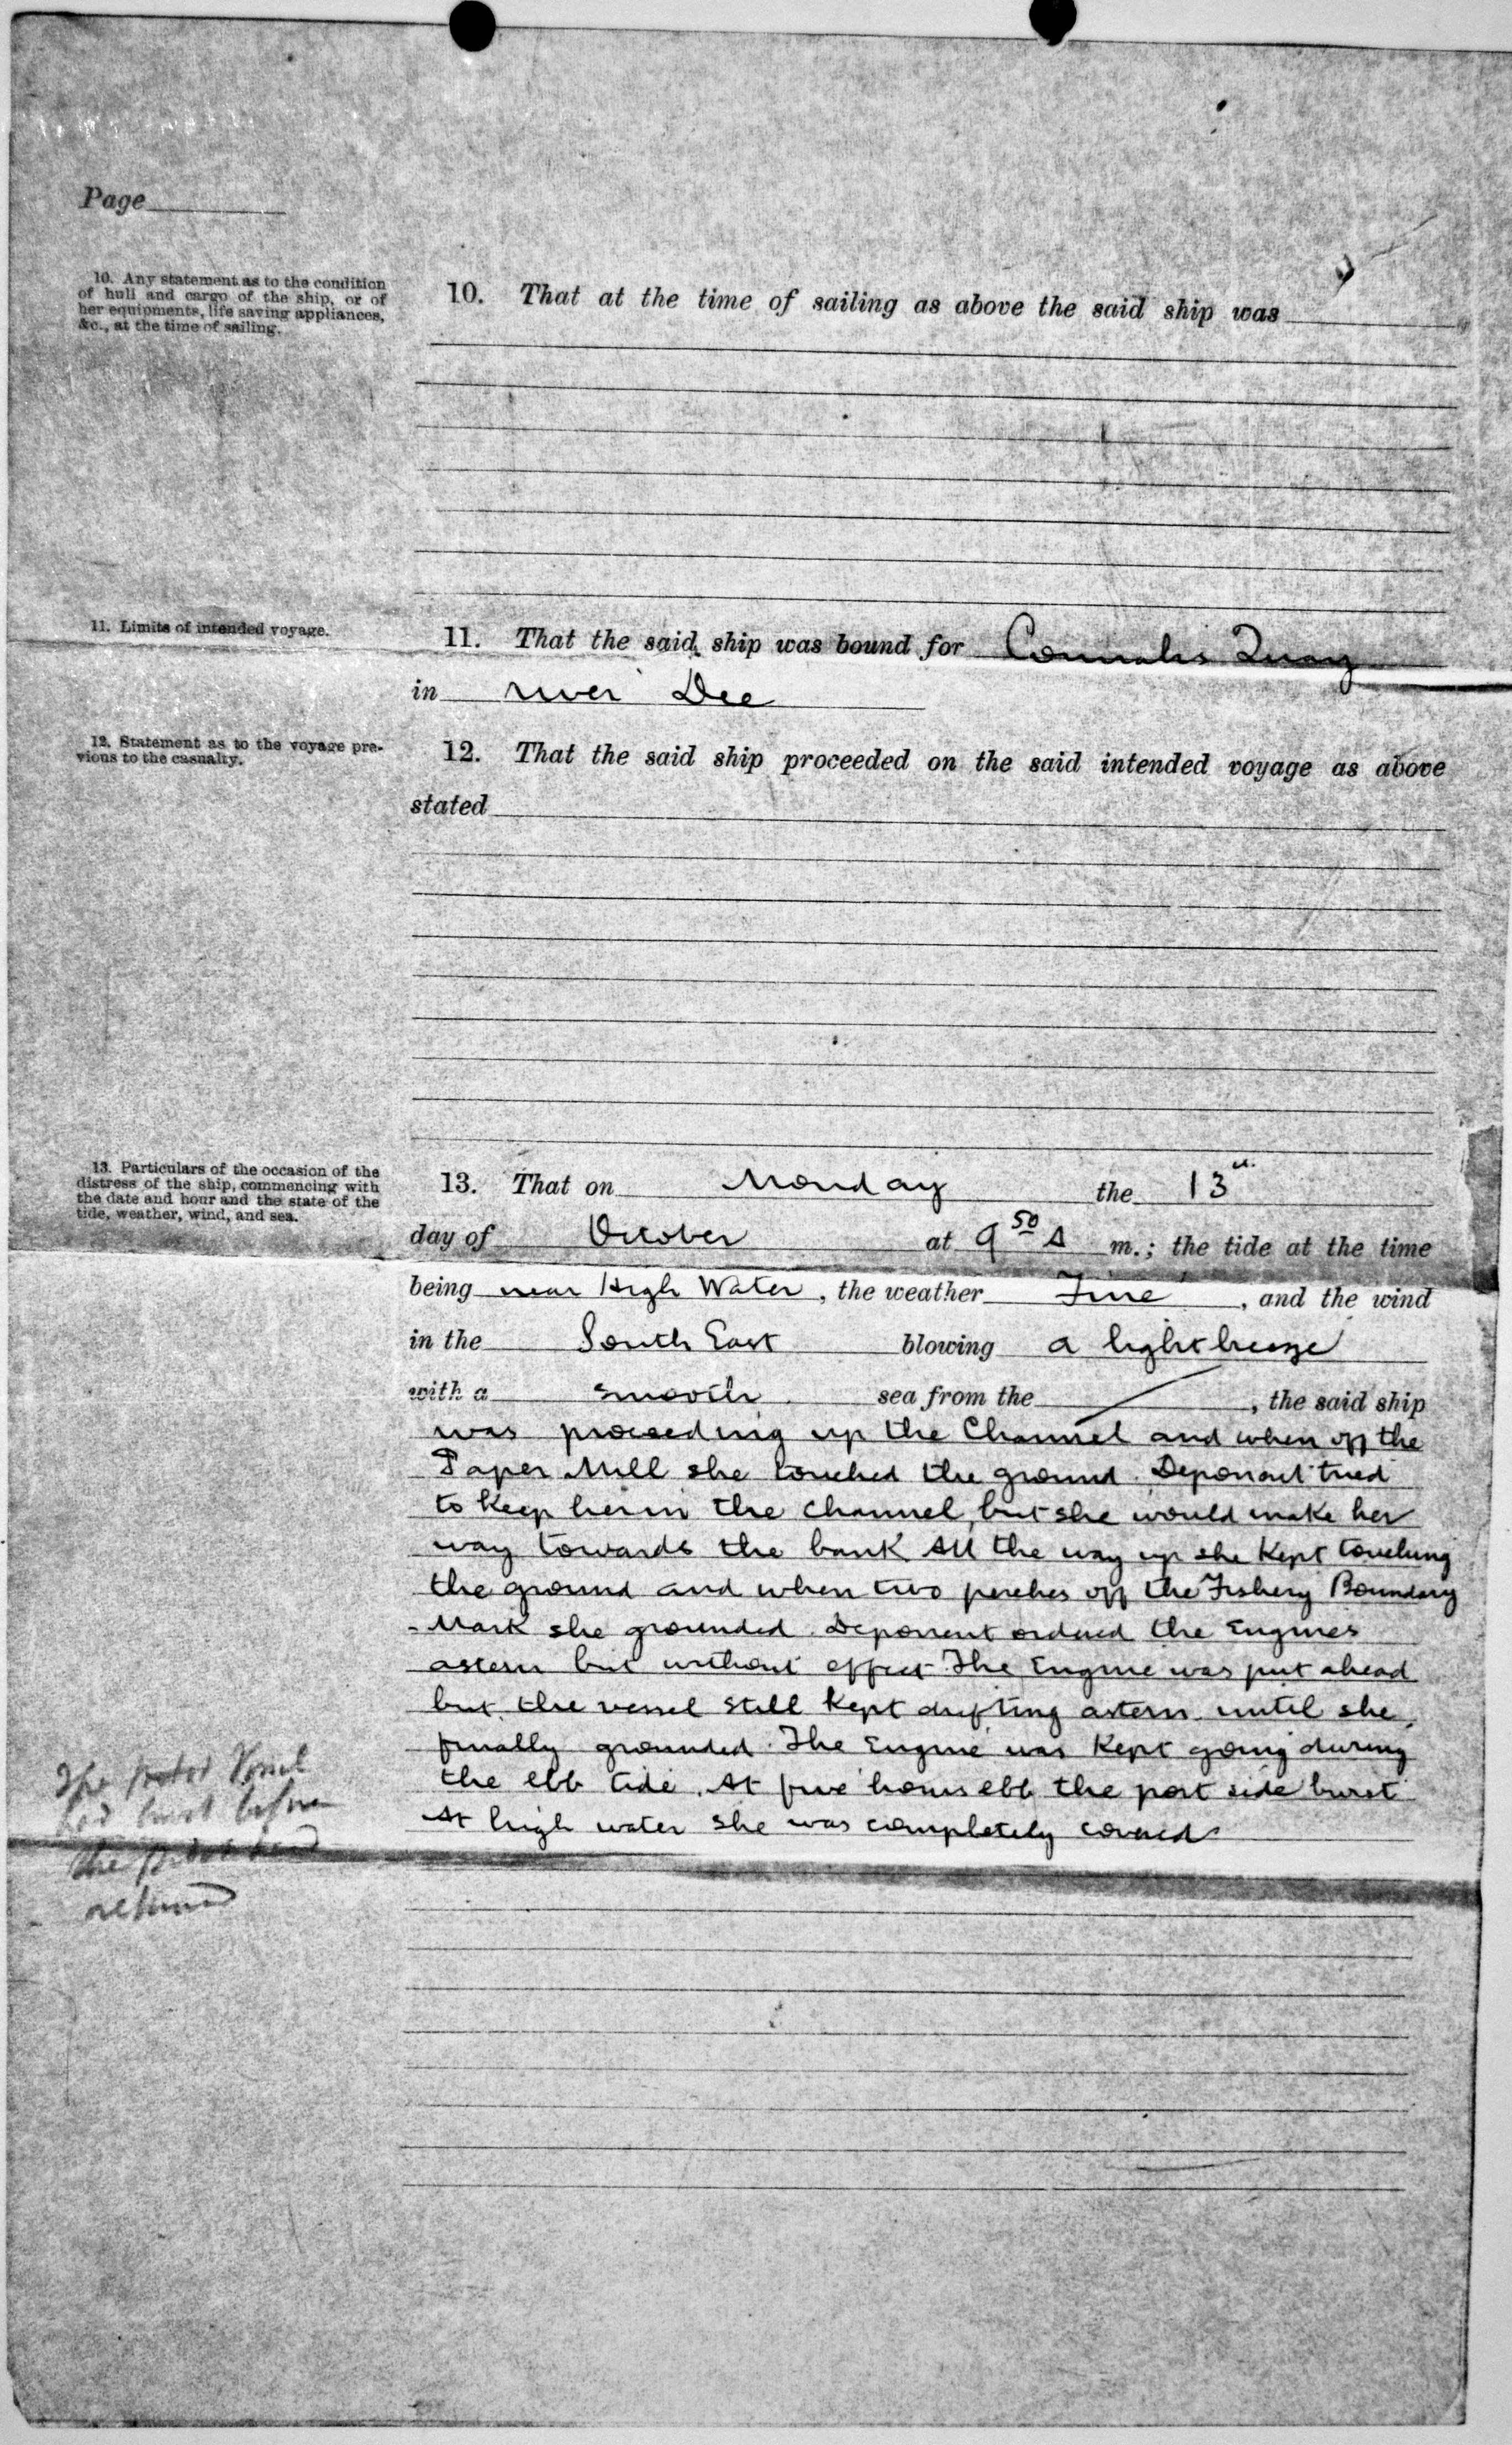 Page
10. Any statement as to the condition
of hull and cargo of the ship, or of
her equipments, life saving appliances,
&c., at the time of sailing.
10. That at the time of sailing as above the said ship was
11. Limits of intended voyage.
11. That the said ship was bound for Connahs Quay
in river Dee
12. Statement as to the voyage pre-
vious to the casualty.
12. That the said ship proceeded on the said intended voyage as above
stated
13. Particulars of the occasion of the
distress of the ship, commencing with
the date and hour and the state of the
tide, weather, wind, and sea.
13. That on Monday the 13th
day of October at 9 50 A m.; the tide at the time
being near High Water, the weather Fine, and the wind
in the South East blowing a light breeze
with a smooth sea from the , the said ship
was proceeding up the Channel and when off the
Paper Mill she touched the ground. Deponent tried
to keep her in the channel, but she would make her
way towards the bank All the way up she kept touching
the ground and when two perches off the Fishery Boundary
Mark she grounded. Deponent ordered the Engines
astern but without effect. The Engine was put ahead
but the vessel still kept drifting astern until she
finally grounded. The Engine was kept going during
the ebb tide. At five hours ebb the port side burst
At high water she was completely covered
The Vessel
had burst before
the
returned